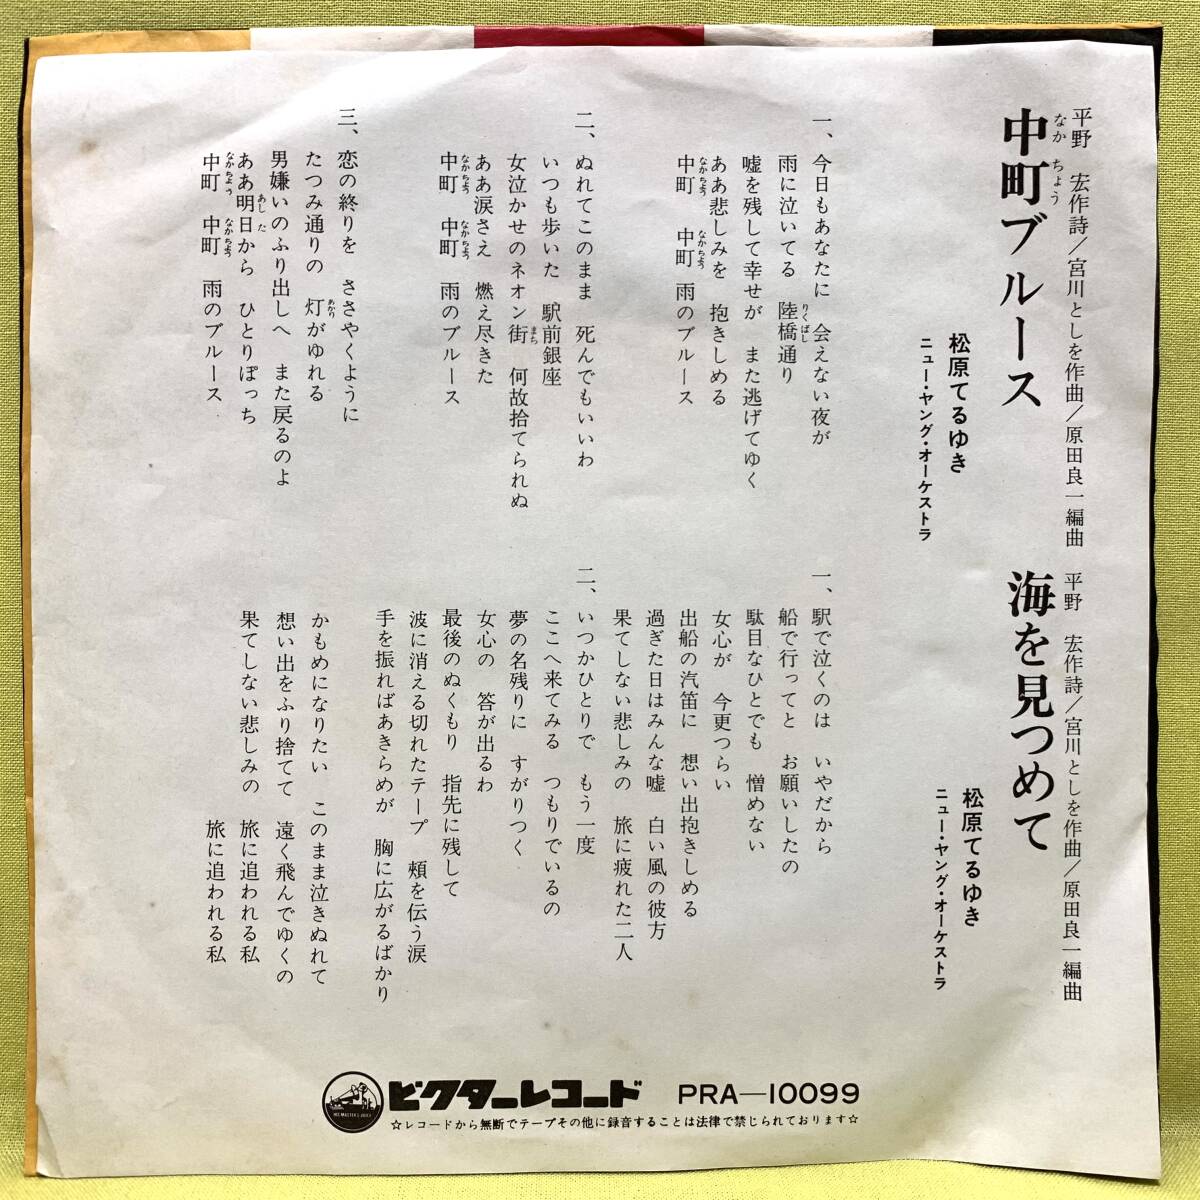 平野 宏作詩／宮川としを作曲／原田良一編曲
中町ブルース
なか ちょう
松原てるゆき
ニュー・ヤング・オーケストラ
一、今日もあなたに 会えない夜が
雨に泣いてる 陸橋通り
りくばし
嘘を残して幸せが また逃げてゆく
ああ悲しみを 抱きしめる
中町 中町 雨のブルース
なかちょう なかちょう
二、ぬれてこのまま 死んでもいいわ
いつも歩いた 駅前銀座
女泣かせのネオン街 何故捨てられぬ
まち
ああ涙さえ 燃え尽きた
中町 中町 雨のブルース
なかちょう なかちょう
三、恋の終りを ささやくように
たつみ通りの 灯がゆれる
あかり
男嫌いのふり出しへ また戻るのよ
ああ明日から ひとりぽっち
あした
中町 中町 雨のブルース
なかちょう なかちょう
平野 宏作詩／宮川としを作曲／原田良一編曲
海を見つめて
松原てるゆき
ニュー・ヤング・オーケストラ
一、駅で泣くのは いやだから
船で行ってと お願いしたの
駄目なひとでも 憎めない
女心が 今更つらい
出船の汽笛に 想い出抱きしめる
過ぎた日はみんな嘘 白い風の彼方
果てしない悲しみの 旅に疲れた二人
二、いつかひとりで もう一度
ここへ来てみる つもりでいるの
夢の名残りに すがりつく
女心の 答が出るわ
最後のぬくもり 指先に残して
波に消える切れたテープ 頬を伝う涙
手を振ればあきらめが 胸に広がるばかり
かもめになりたい このまま泣きぬれて
想い出をふり捨てて 遠く飛んでゆくの
果てしない悲しみの 旅に追われる私
旅に追われる私
HIS MASTER'S VOICE
ビクターレコード PRA—10099
☆レコードから無断でテープその他に録音することは法律で禁じられております☆